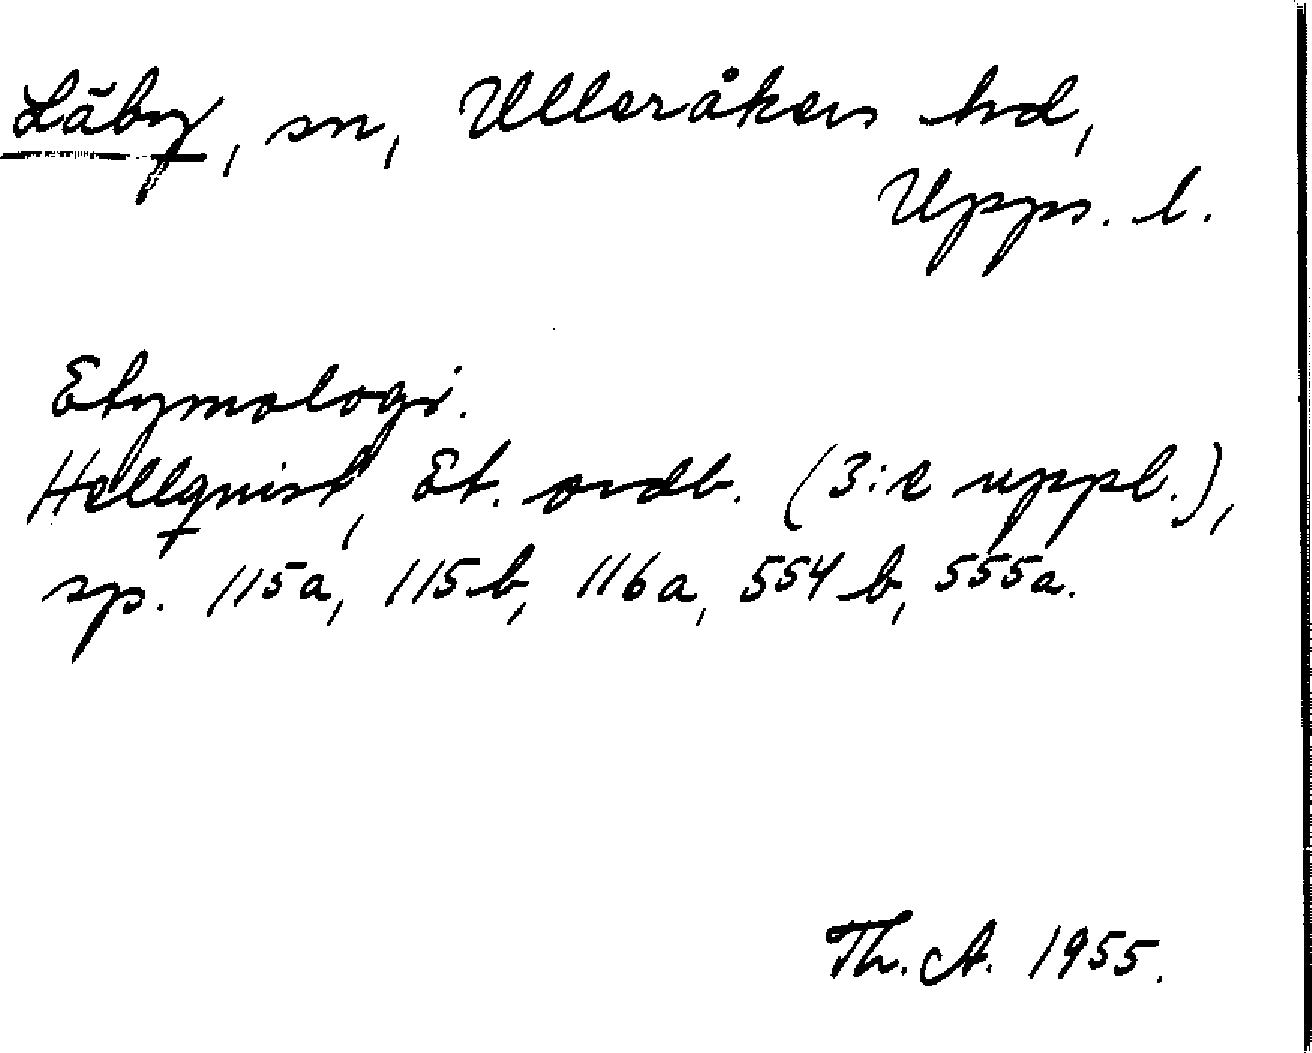 Läby, sn, Ulleråkers hd,
Upps. l.
Etymologi.
Hellquist, Et. ordb. (3:e uppl.),
sp. 115a, 115b, 116a, 554b, 555a.
Th. A. 1955.